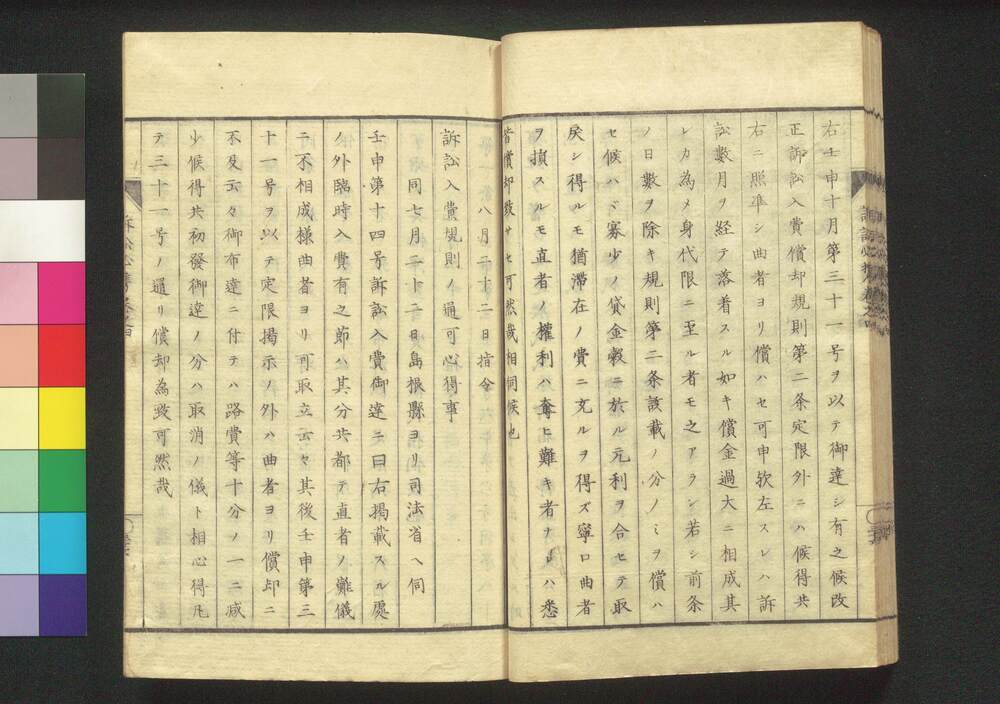 右壬申十月第三十一号ヲ以テ御達シ有之候改
正訴訟入費償却規則第二条定限外ニハ候得共
右ニ照準シ曲者ヨリ償ハセ可申欤左スレハ訴
訟数月ヲ経テ落着スル如キ償金過大ニ相成其
レカ為メ身代限ニ至ル者モ之アラン若シ前条
ノ日数ヲ除キ規則第二条該載ノ分ノミヲ償ハ
セ候ハヾ寡少ノ貸金穀ニ於ル元利ヲ合セテ取
戾シ得ルモ猶滞在ノ費ニ充ルヲ得ズ寧口曲者
ヲ損スルモ直者ノ權利ハ奪ヒ難キ者ナレハ悉
皆償却致サセ可然哉相伺候也
八月二十二日指令
訴訟入費規則ノ通可心得事
同七月二十二日島根縣ヨリ司法省ヘ伺
壬申第十四号訴訟入費御達ニ曰右掲載スル處
ノ外臨時入費有之節ハ其分共都テ直者ノ難儀
ニ不相成様曲者ヨリ可取立云々其後壬申第三
十一号ヲ以テ定限掲示ノ外ハ曲者ヨリ償却ニ
不及云々御布達ニ付テハ路費等十分ノ一二减
少候得共初發御達ノ分ハ取消ノ儀ト相心得凡
テ三十一号ノ通リ償却為致可然哉
訴訟必携卷之四